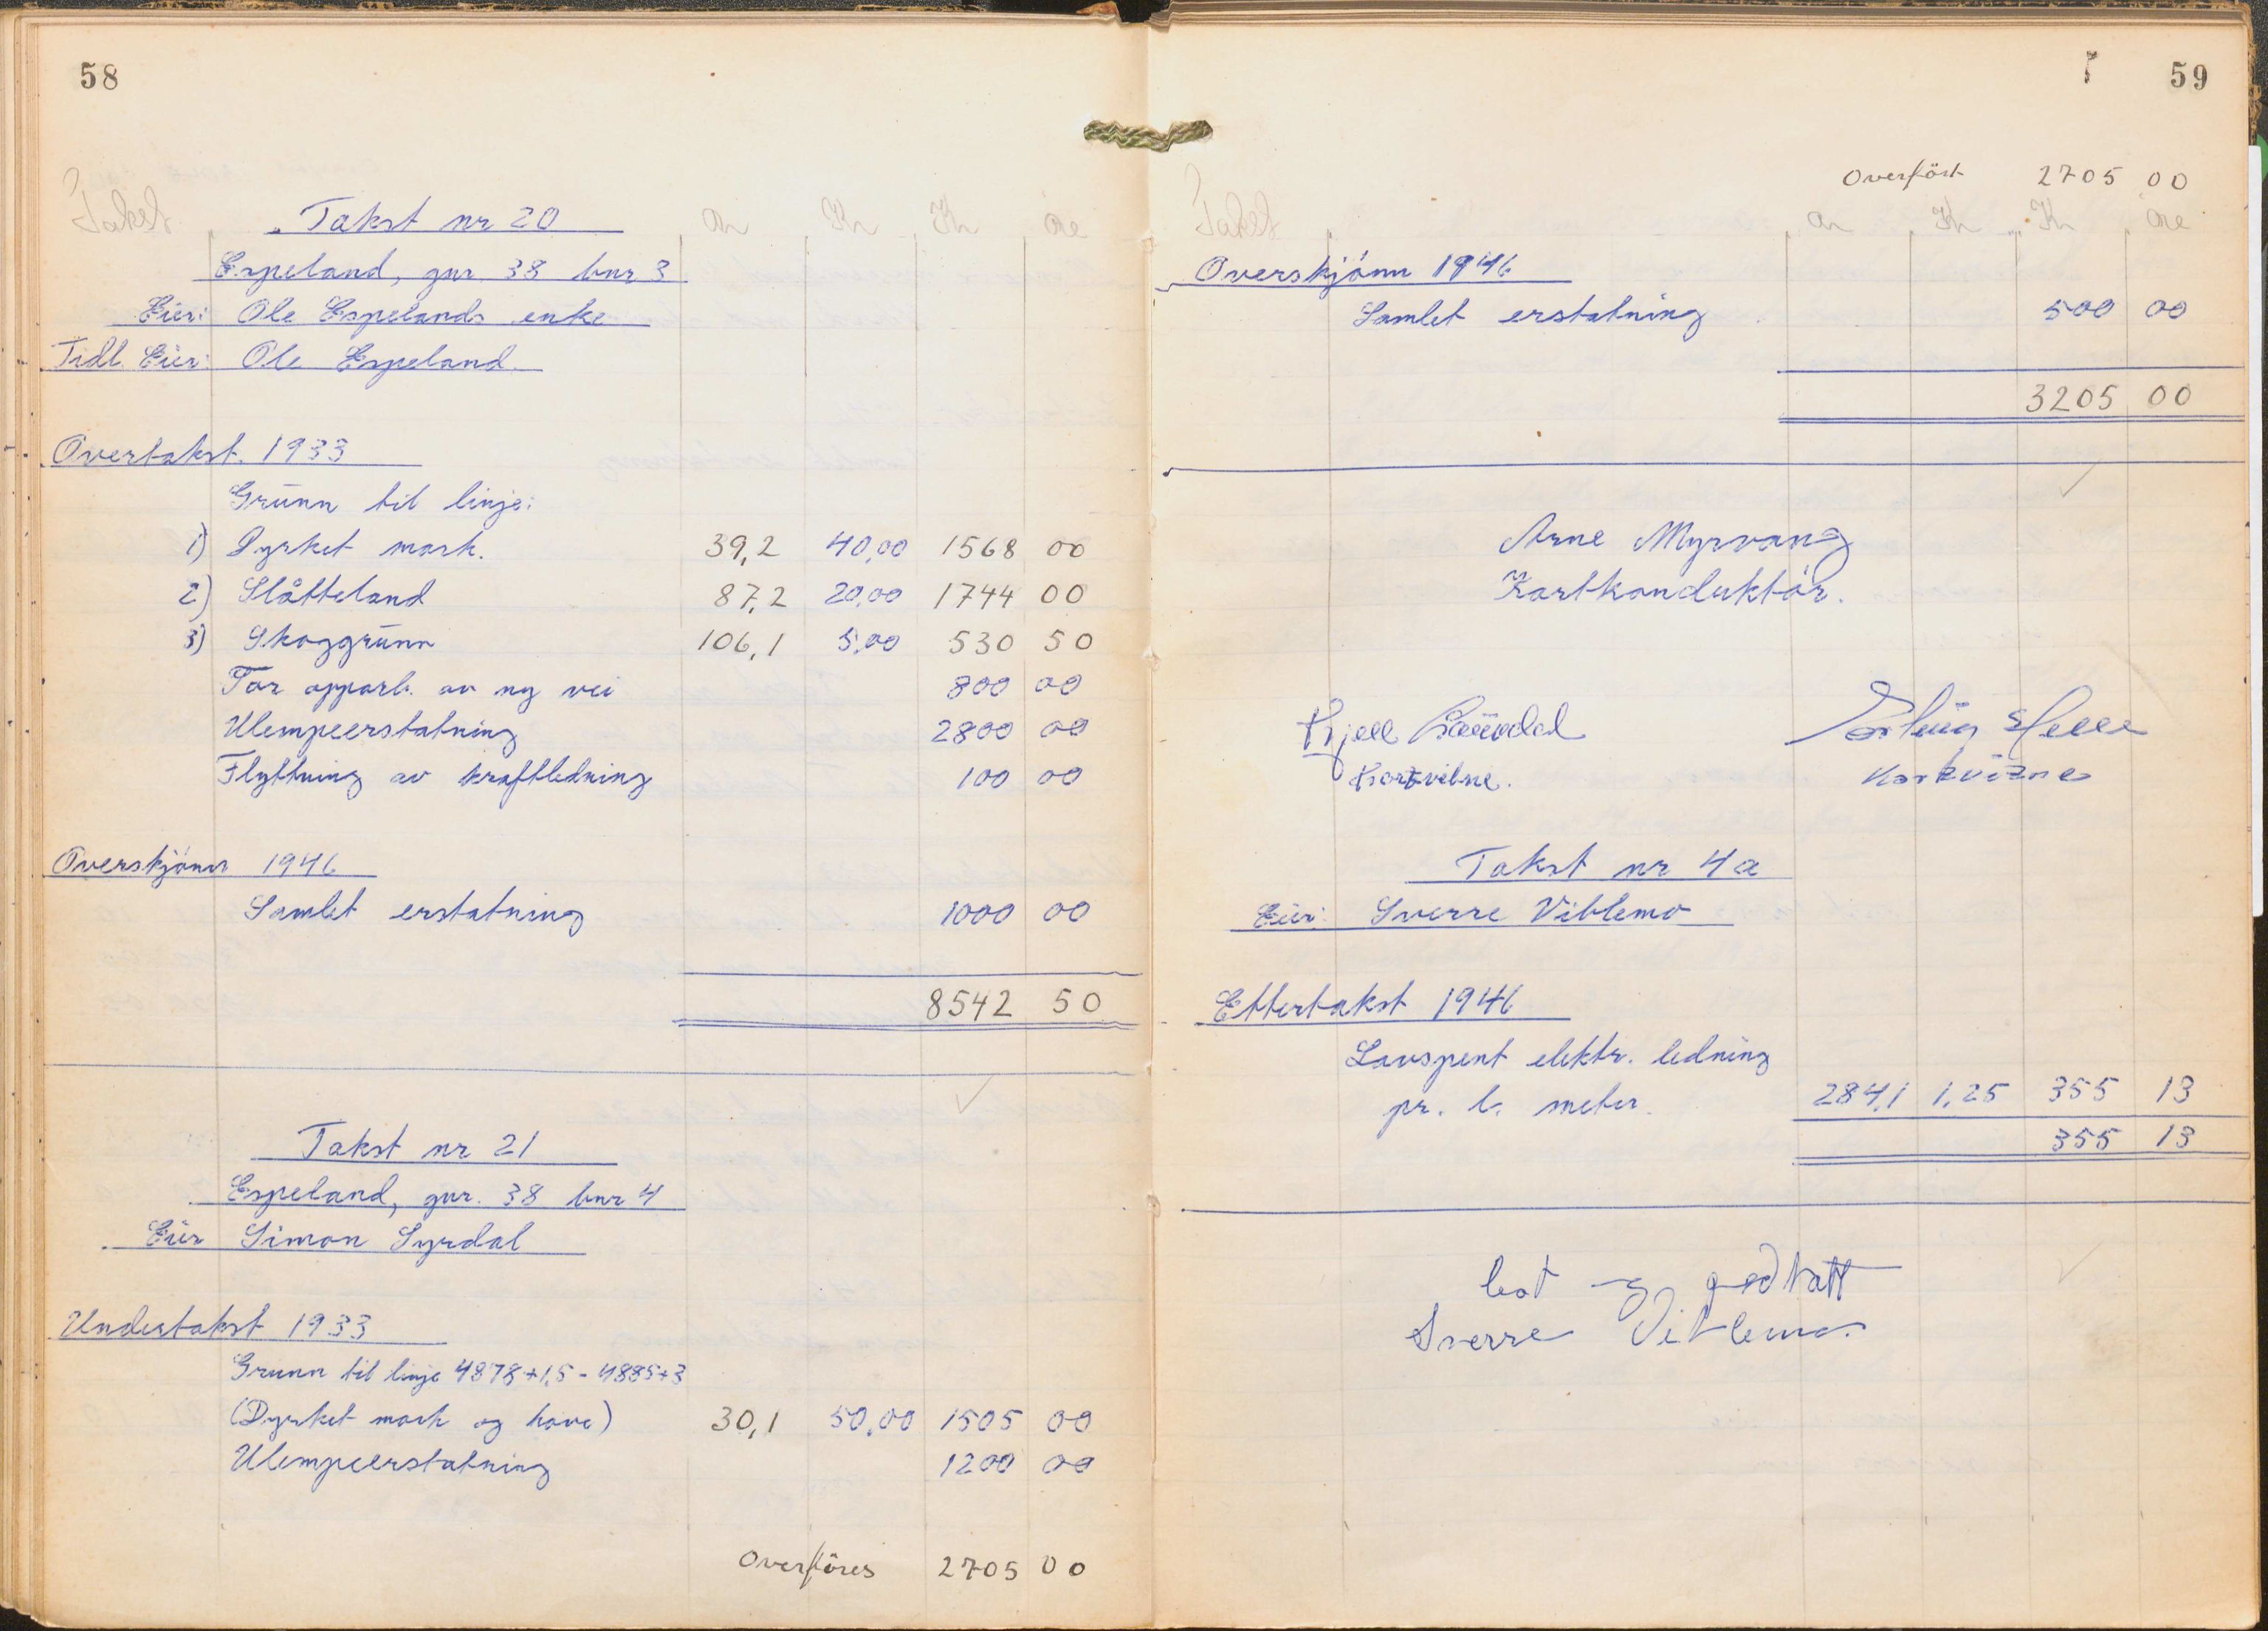 58
Takst ar Kr Kr øre
Takst nr 20
Espeland, gnr. 38 bnr 3
Eier: Ole Espelands enke
Tidl. Eier: Ole Espeland.
Overtakst. 1933
Grunn til linje:
1) Dyrket mark. 39,2 40,00 1568 00
2) Slåtteland 87,2 20,00 1744 00
3) Skoggrunn 106,1 5,00 530 50
For opparb. av ny vei 800 00
Ulempeerstatning 2800 00
Flyttning av kraftledning 100 00
Overskjönn 1946
Samlet erstatning 1000 00
8542 50
Takst nr 21
Espeland, gnr. 38 bnr 4
Eier Simon Syrdal
Undertakst 1933
Grunn til linje 4878+1,5 - 4885+3
(Dyrket mark og have) 30,1 50,00 1505 00
Ulempeerstatning 1200 00
Overföres 2705 00
59
Overfört 2705 00
Takst ar Kr Kr øre
Overskjönn 1946
Samlet erstatning 500 00
3205 00
Arne Myrvang
Kartkonduktör.
Kjell
Kartvitne.
Erling Helle
Kartvitne
Takst nr 4a
Eier: Sverre Vibtemo
Ettertakst 1946
Lavspent elektr. ledning
pr. l. meter. 284,1 1,25 355 13
355 13
lest og godtatt
Sverre